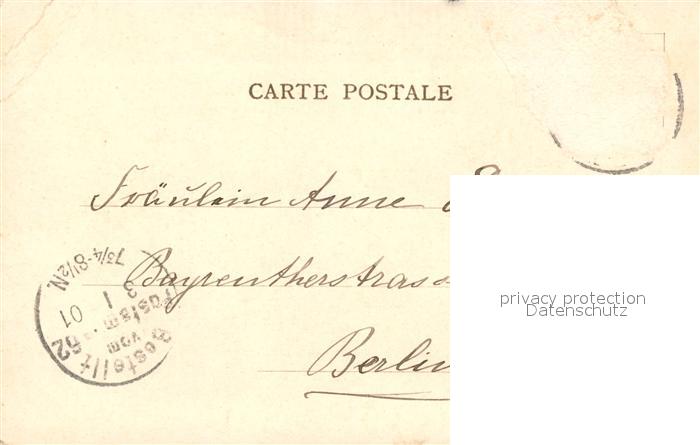 CARTE POSTALE
Fräulein Anne
Bayreutherstrass
Berlin
Bestellt
vom
Postamte 62
3
1
01
7¾-8½N.
privacy protection
Datenschutz